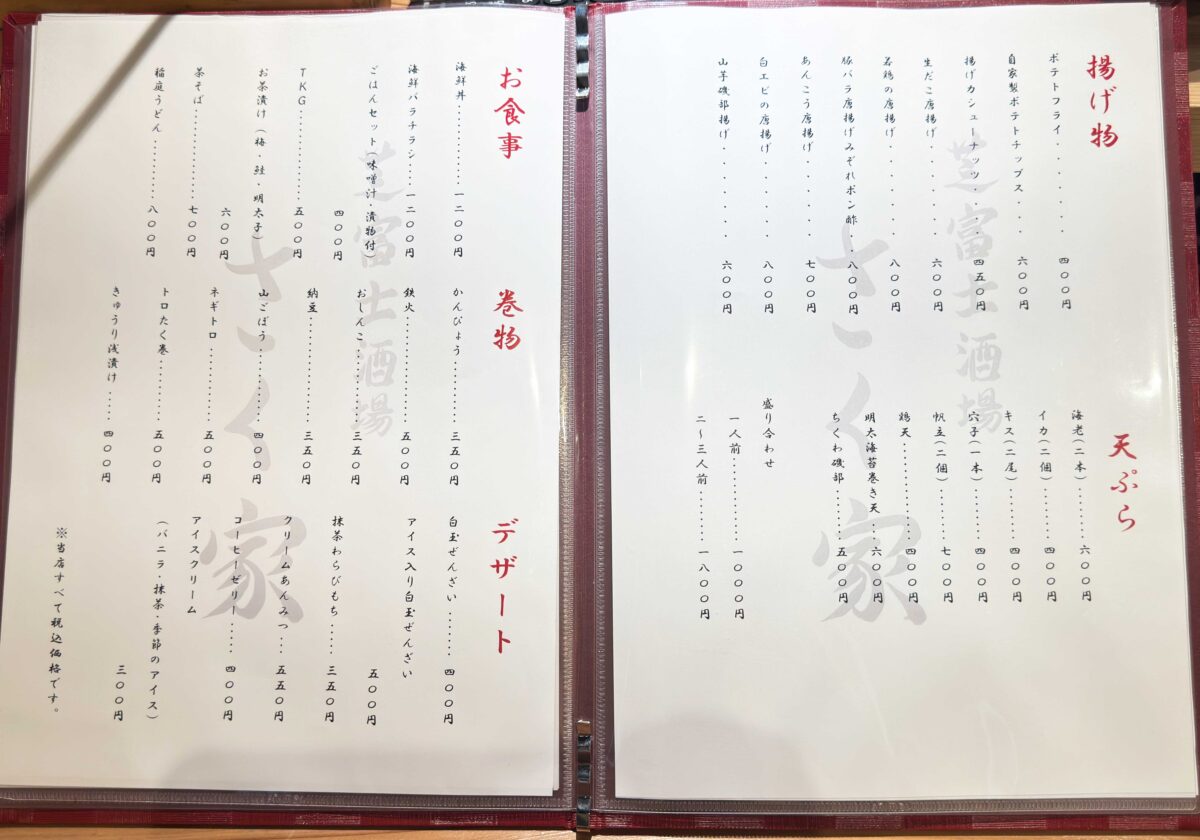 揚げ物
ポテトフライ・・・・・・四〇〇円
自家製ポテトチップス・・・六〇〇円
揚げカシューナッツ・・・四五〇円
生だこ唐揚げ・・・・・六〇〇円
若鶏の唐揚げ・・・・・八〇〇円
豚バラ唐揚げみぞれポン酢 八〇〇円
あんこう唐揚げ・・・・七〇〇円
白エビの唐揚げ・・・・八〇〇円
山芋磯部揚げ・・・・・六〇〇円
天ぷら
海老(二本)・・・・・・六〇〇円
イカ(二個)・・・・・・四〇〇円
キス(二尾)・・・・・・四〇〇円
穴子(一本)・・・・・・四〇〇円
帆立(二個)・・・・・・七〇〇円
鶏天・・・・・・・・・四〇〇円
明太海苔巻き天・・・六〇〇円
ちくわ磯部・・・・・五〇〇円
盛り合わせ
一人前・・・・・・・・一〇〇〇円
二〜三人前・・・・・・一八〇〇円
芝富士酒場
さく家
お食事
海鮮丼・・・・・・・・一二〇〇円
海鮮バラチラシ・・・一二〇〇円
ごはんセット(味噌汁・漬物付)
四〇〇円
TKG・・・・・・・・・五〇〇円
お茶漬け(梅・鮭・明太子)
六〇〇円
茶そば・・・・・・・・七〇〇円
稲庭うどん・・・・・・八〇〇円
巻物
かんぴょう・・・・・・三五〇円
鉄火・・・・・・・・・五〇〇円
おしんこ・・・・・・・三五〇円
納豆・・・・・・・・・三五〇円
山ごぼう・・・・・・・四〇〇円
ネギトロ・・・・・・・五〇〇円
トロたく巻・・・・・・五〇〇円
きゅうり浅漬け・・・四〇〇円
デザート
白玉ぜんざい・・・・・四〇〇円
アイス入り白玉ぜんざい
五〇〇円
抹茶わらびもち・・・三五〇円
クリームあんみつ・・・五五〇円
コーヒーゼリー・・・・四〇〇円
アイスクリーム
(バニラ・抹茶・季節のアイス)
三〇〇円
※当店すべて税込価格です。
芝富士酒場
さく家